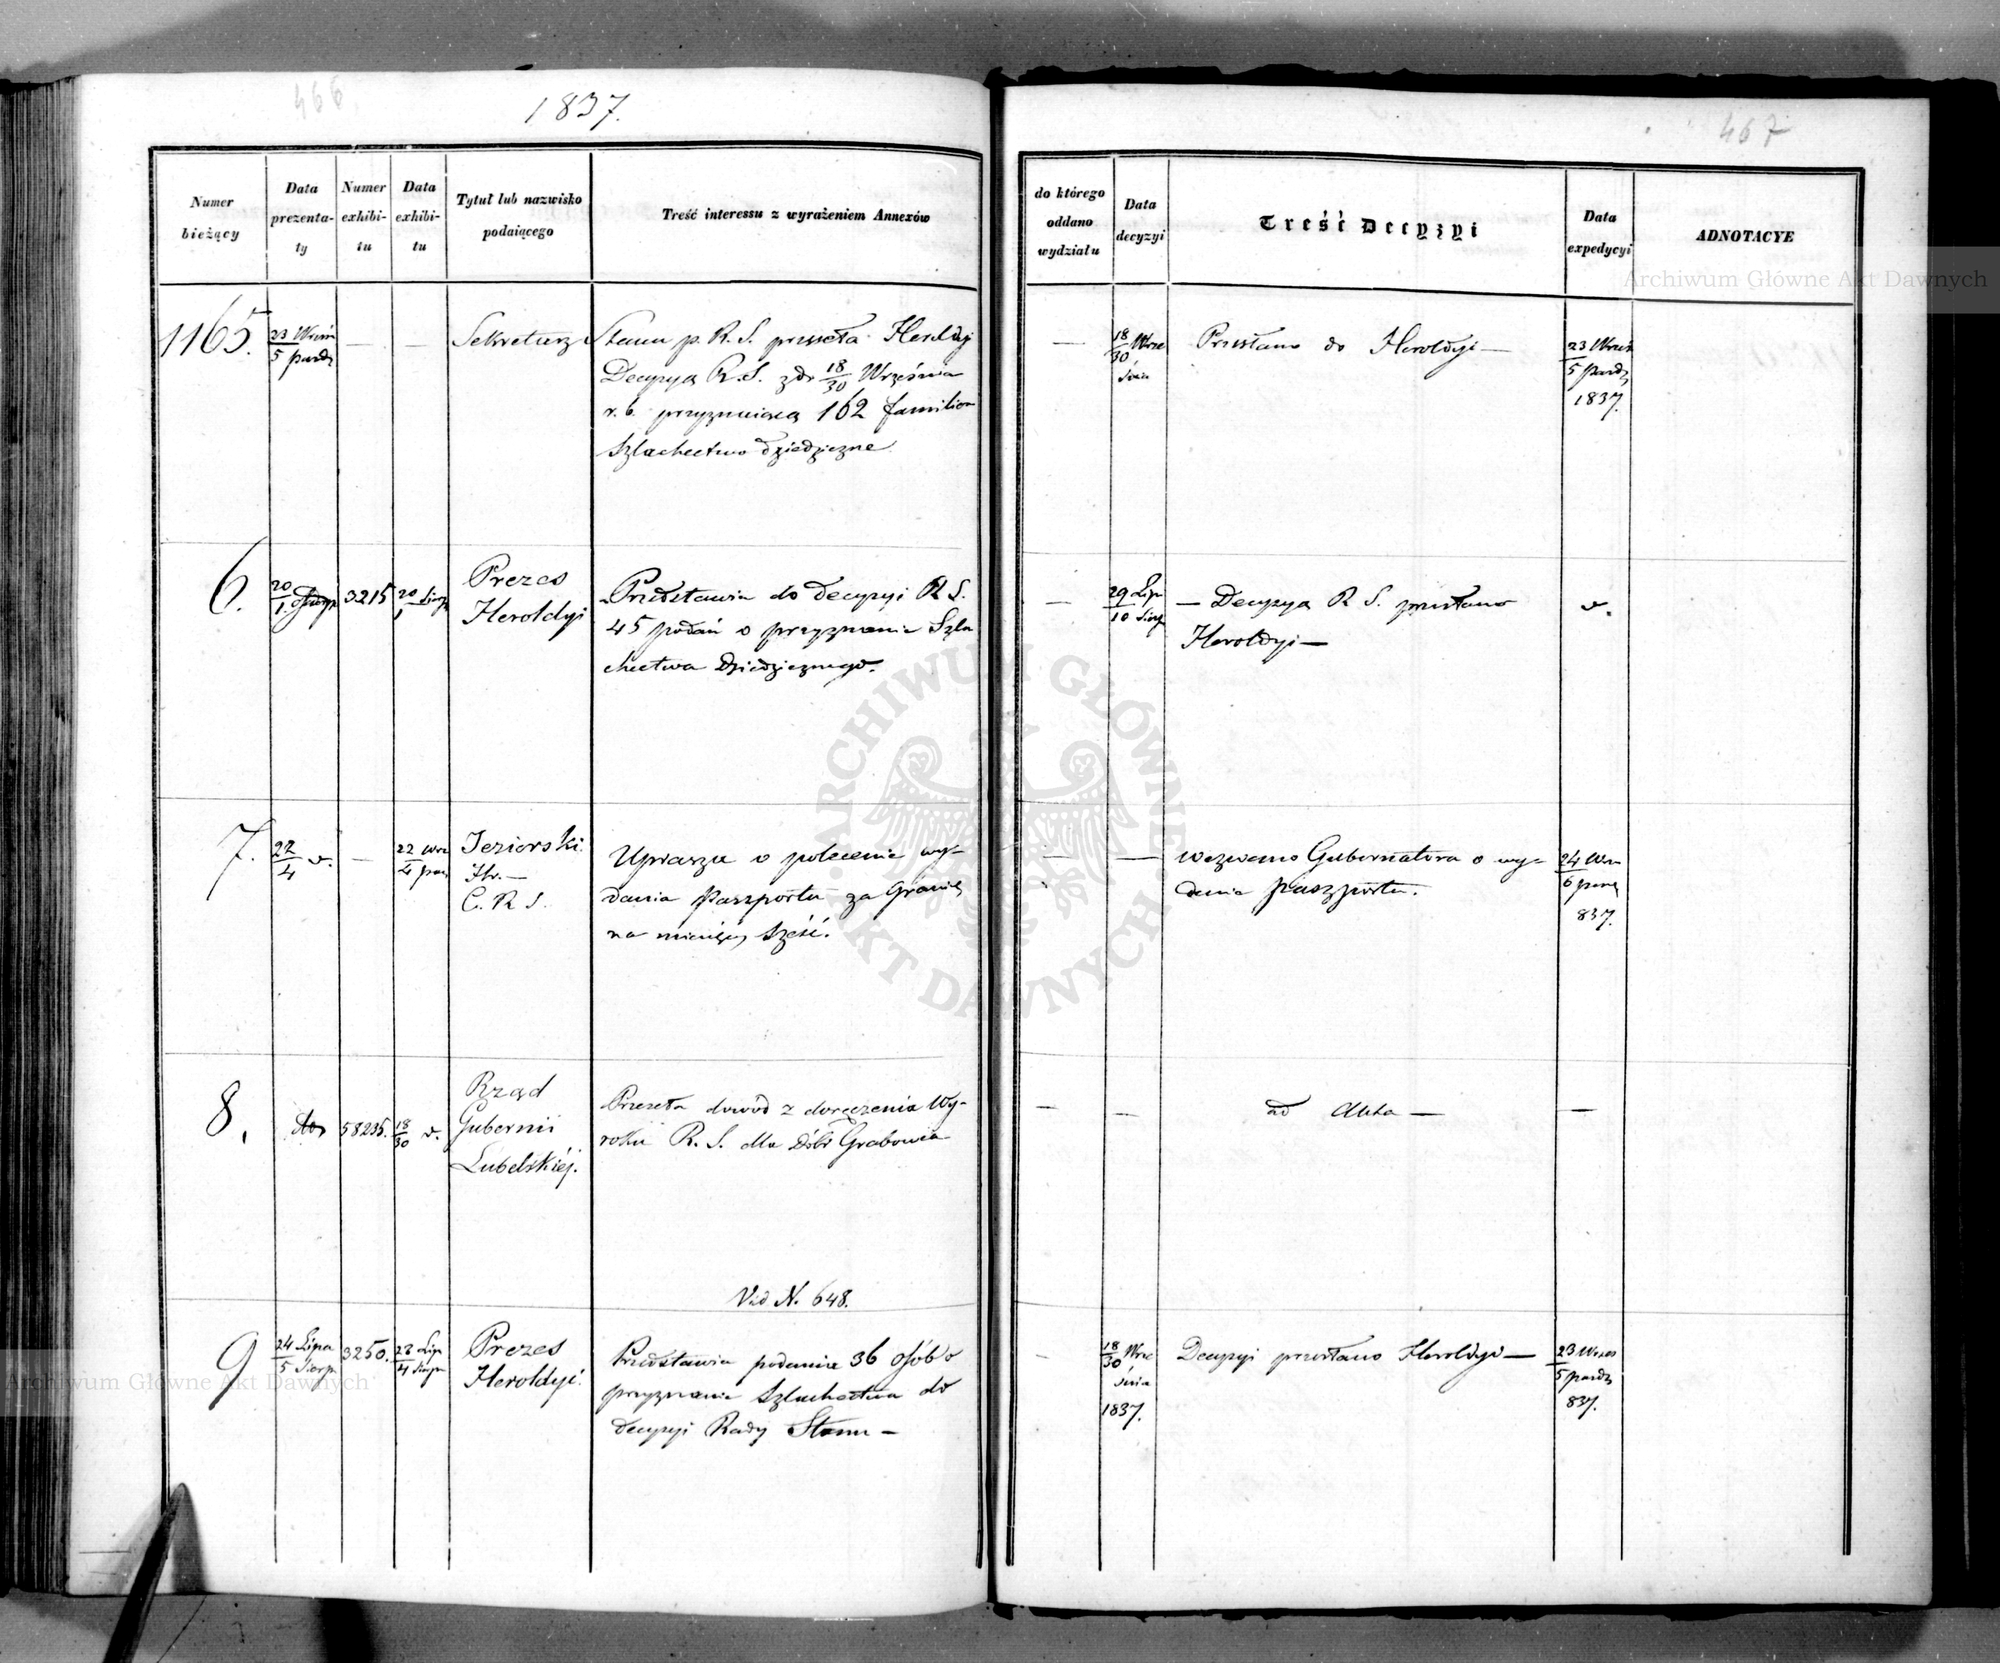 466
1837.
Numer bieżący
Data prezenta-ty
Numer exhibi-tu
Data exhibi-tu
Tytuł lub nazwisko podaiącego
Treść interessu z wyrażeniem Annexów
1165.
23 Wrześ / 5 Paźdz
—
—
Sekretarz Stanu p. R. S. przeseła Heroldyi
Decyzyą R. S. z dr 18/30 Września
r. b. przyznaiącą 162 familiom
Szlachectwo dziedziczne
6.
20/1. Sierp
3215
20/1 Sierp
Prezes
Heroldyi
Przedstawia do decyzyi R. S.
45 podań o przyznanie Szla
chectwa dziedzicznego.
7.
22/4 v.
—
22 Wrz / 4 paź
Jezierski
Hr.—
C. R. S.
Uprasza o polecenie wy-
dania Paszportu za Granicę
na miesięcy sześć.
8.
58235.
18/30 v.
Rząd
Gubernii
Lubelskiéj.
Przeseła dowód z doręczenia Wy-
roku R. S. dla Dóbr Grabowca
Vid N. 648.
9
24 Lipca / 5 Sierp.
3250.
23 Lip / 4 Sierpn
Prezes
Heroldyi.
Przedstawia podania 36 osób o
przyznanie Szlachectwa do
decyzyi Rady Stanu —
467
do którego oddano wydziału
Data decyzyi
Treść Decyzyi
Data expedycyi
ADNOTACYE
—
18/30 Wrze
śnia
Przesłano do Heroldyi —
23 Wrześ / 5 Paźdz
1837.
—
29 Lip / 10 Sierp
— Decyzya R. S. przesłano
Heroldyi —
v.
—
—
Wezwano Gubernatora o wy-
danie paszportu.
24 Wrz / 6 paźd
837.
—
—
ad Akta —
—
—
18/30 Wrze
śnia
1837.
Decyzyi przesłano Heroldyi —
23 Wrześ / 5 paźdz
837.
Archiwum Główne Akt Dawnych
ARCHIWUM GŁÓWNE AKT DAWNYCH
Archiwum Główne Akt Dawnych